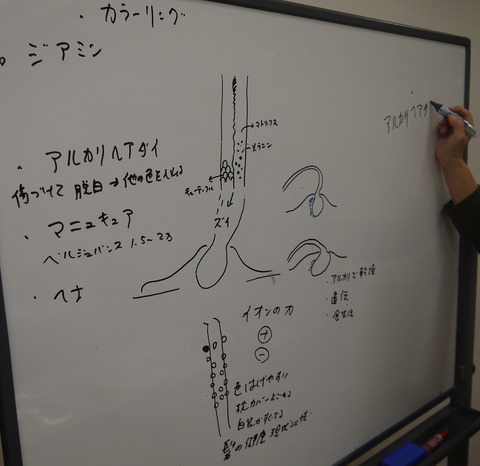 ・カラーリング
・ジアミン
・アルカリヘアダイ
傷づけて 脱白 → 他の色を入れる
・マニュキュア
ベルジュバンス 1.5~2ヵ
・ヘナ
マトリックス
メラニン
キューティクル
ズイ
アルカリヘアダ
・アルカリで乾燥
・遺伝
・食生活
イオンの力
+
−
色はげやすい
枕カバーよごれる
髪の健康 現状維持